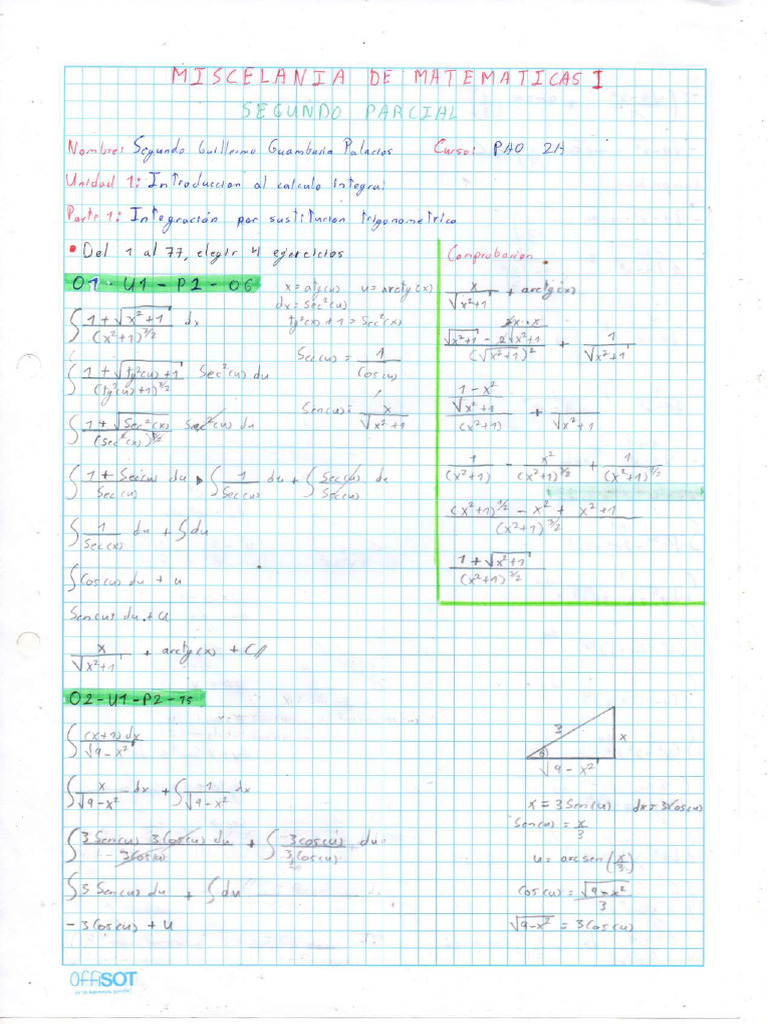 MISCELANIA DE MATEMATICAS I
SEGUNDO PARCIAL
Nombre: Segundo Guillermo Guambaña Palacios Curso: PAO 2A
Unidad 1: Introduccion al calculo integral
Parte 1: Integración por sustitucion trigonometrica
• Del 1 al 77, elegir 4 ejercicios
01-U1-P2-06
x = atg(u) u = arctg(x)
dx = Sec²(u)
tg²(x) + 1 = Sec²(x)
∫ (1 + √(x²+1)) / (x²+1)^(3/2) dx
Sec(u) = 1 / Cos(u)
∫ (1 + √(tg²(u)+1)) / (tg²(u)+1)^(3/2) Sec²(u) du
Sen(u) = x / √(x²+1)
∫ (1 + √(Sec²(x))) / (Sec²(x))^(3/2) Sec²(u) du
∫ (1 + Sec(u)) / Sec(u) du ∫ 1 / Sec(u) du + ∫ Sec(u) / Sec(u) du
∫ 1 / Sec(x) du + ∫ du
∫ Cos(u) du + u
Sen(u) du + u
x / √(x²+1) + arctg(x) + C
Comprobacion
x / √(x²+1) + arctg(x)
(√(x²+1) - 2x·x / 2√(x²+1)) / (√(x²+1))² + 1 / √(x²+1)
((1 - x²) / √(x²+1)) / (x²+1) + / √(x²+1)
1 / (x²+1) - x² / (x²+1)^(3/2) + 1 / (x²+1)^(3/2)
((x²+1)^(1/2) - x² + x²+1) / (x²+1)^(3/2)
(1 + √(x²+1)) / (x²+1)^(3/2)
02-U1-P2-15
∫ (x+1) dx / √(9-x²)
∫ x / √(9-x²) dx + ∫ 1 / √(9-x²) dx
∫ 3Sen(u) 3Cos(u) du / 3Cos(u) + ∫ 3cos(u) / 3Cos(u) du
∫ 3 Sen(u) du + ∫ du
-3Cos(u) + u
3
x
√(9-x²)
x = 3Sen(u) dx = 3Cos(u)
Sen(u) = x/3
u = arcsen(x/3)
Cos(u) = √(9-x²) / 3
√(9-x²) = 3Cos(u)
OffiSOT